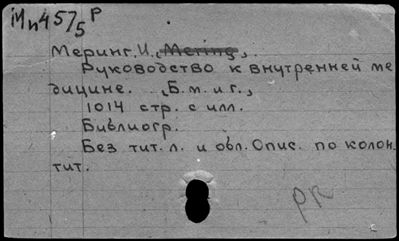 Мп457/5 Р
Меринг, И. (Mering),
Руководство к внутренней ме
дицине. Б. м. и г.,
1014 стр. с илл.
Библиогр.
Без тит. л. и обл. Опис. по колон.
тит.
PR